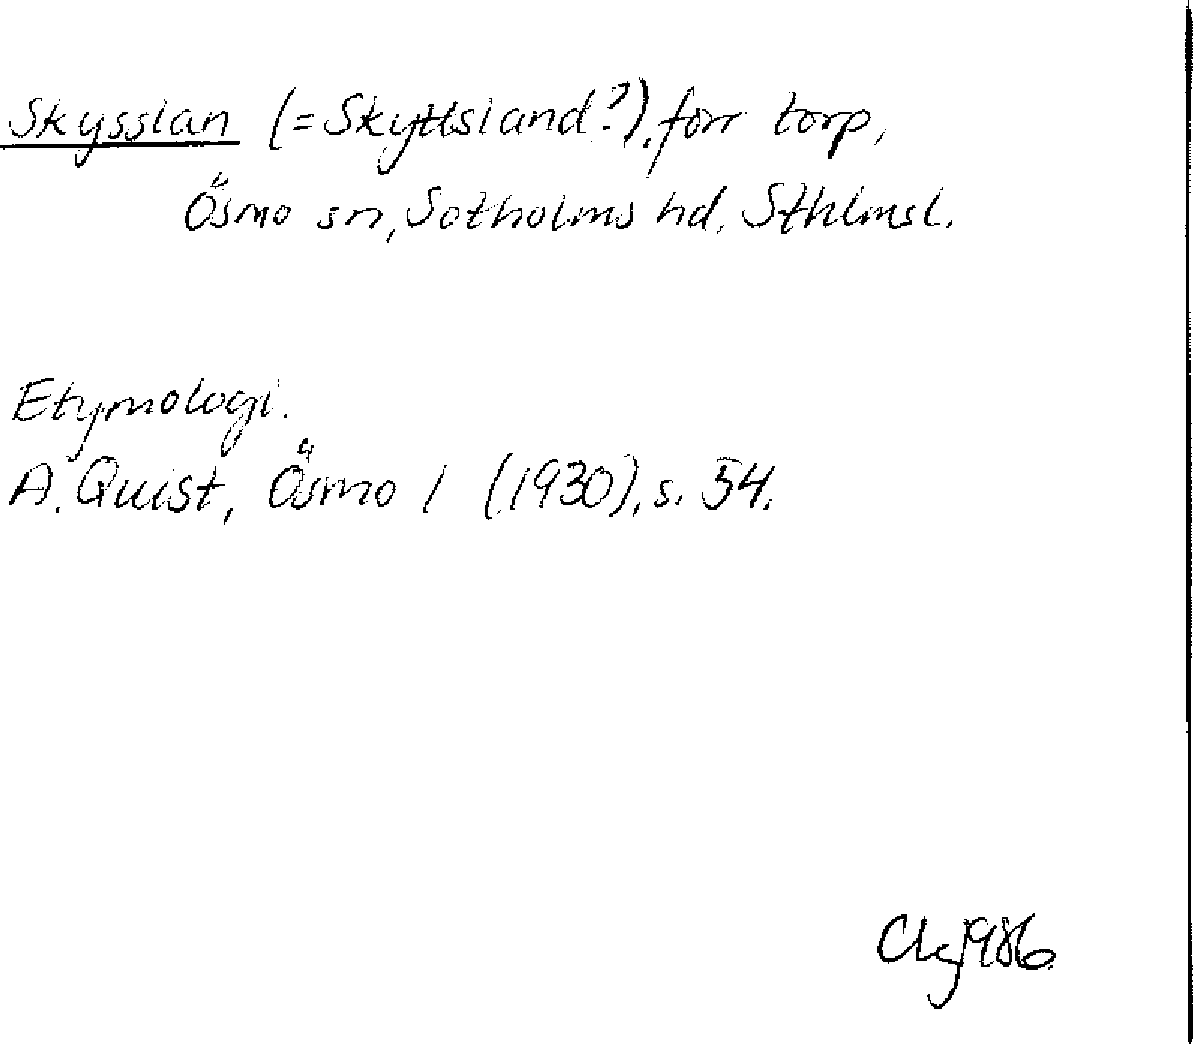 Skysslan (=Skyttsland?), förr torp,
Ösmo sn, Sotholms hd, Sthlmsl.
Etymologi.
A. Quist, Ösmo I (1930), s. 54.
1986